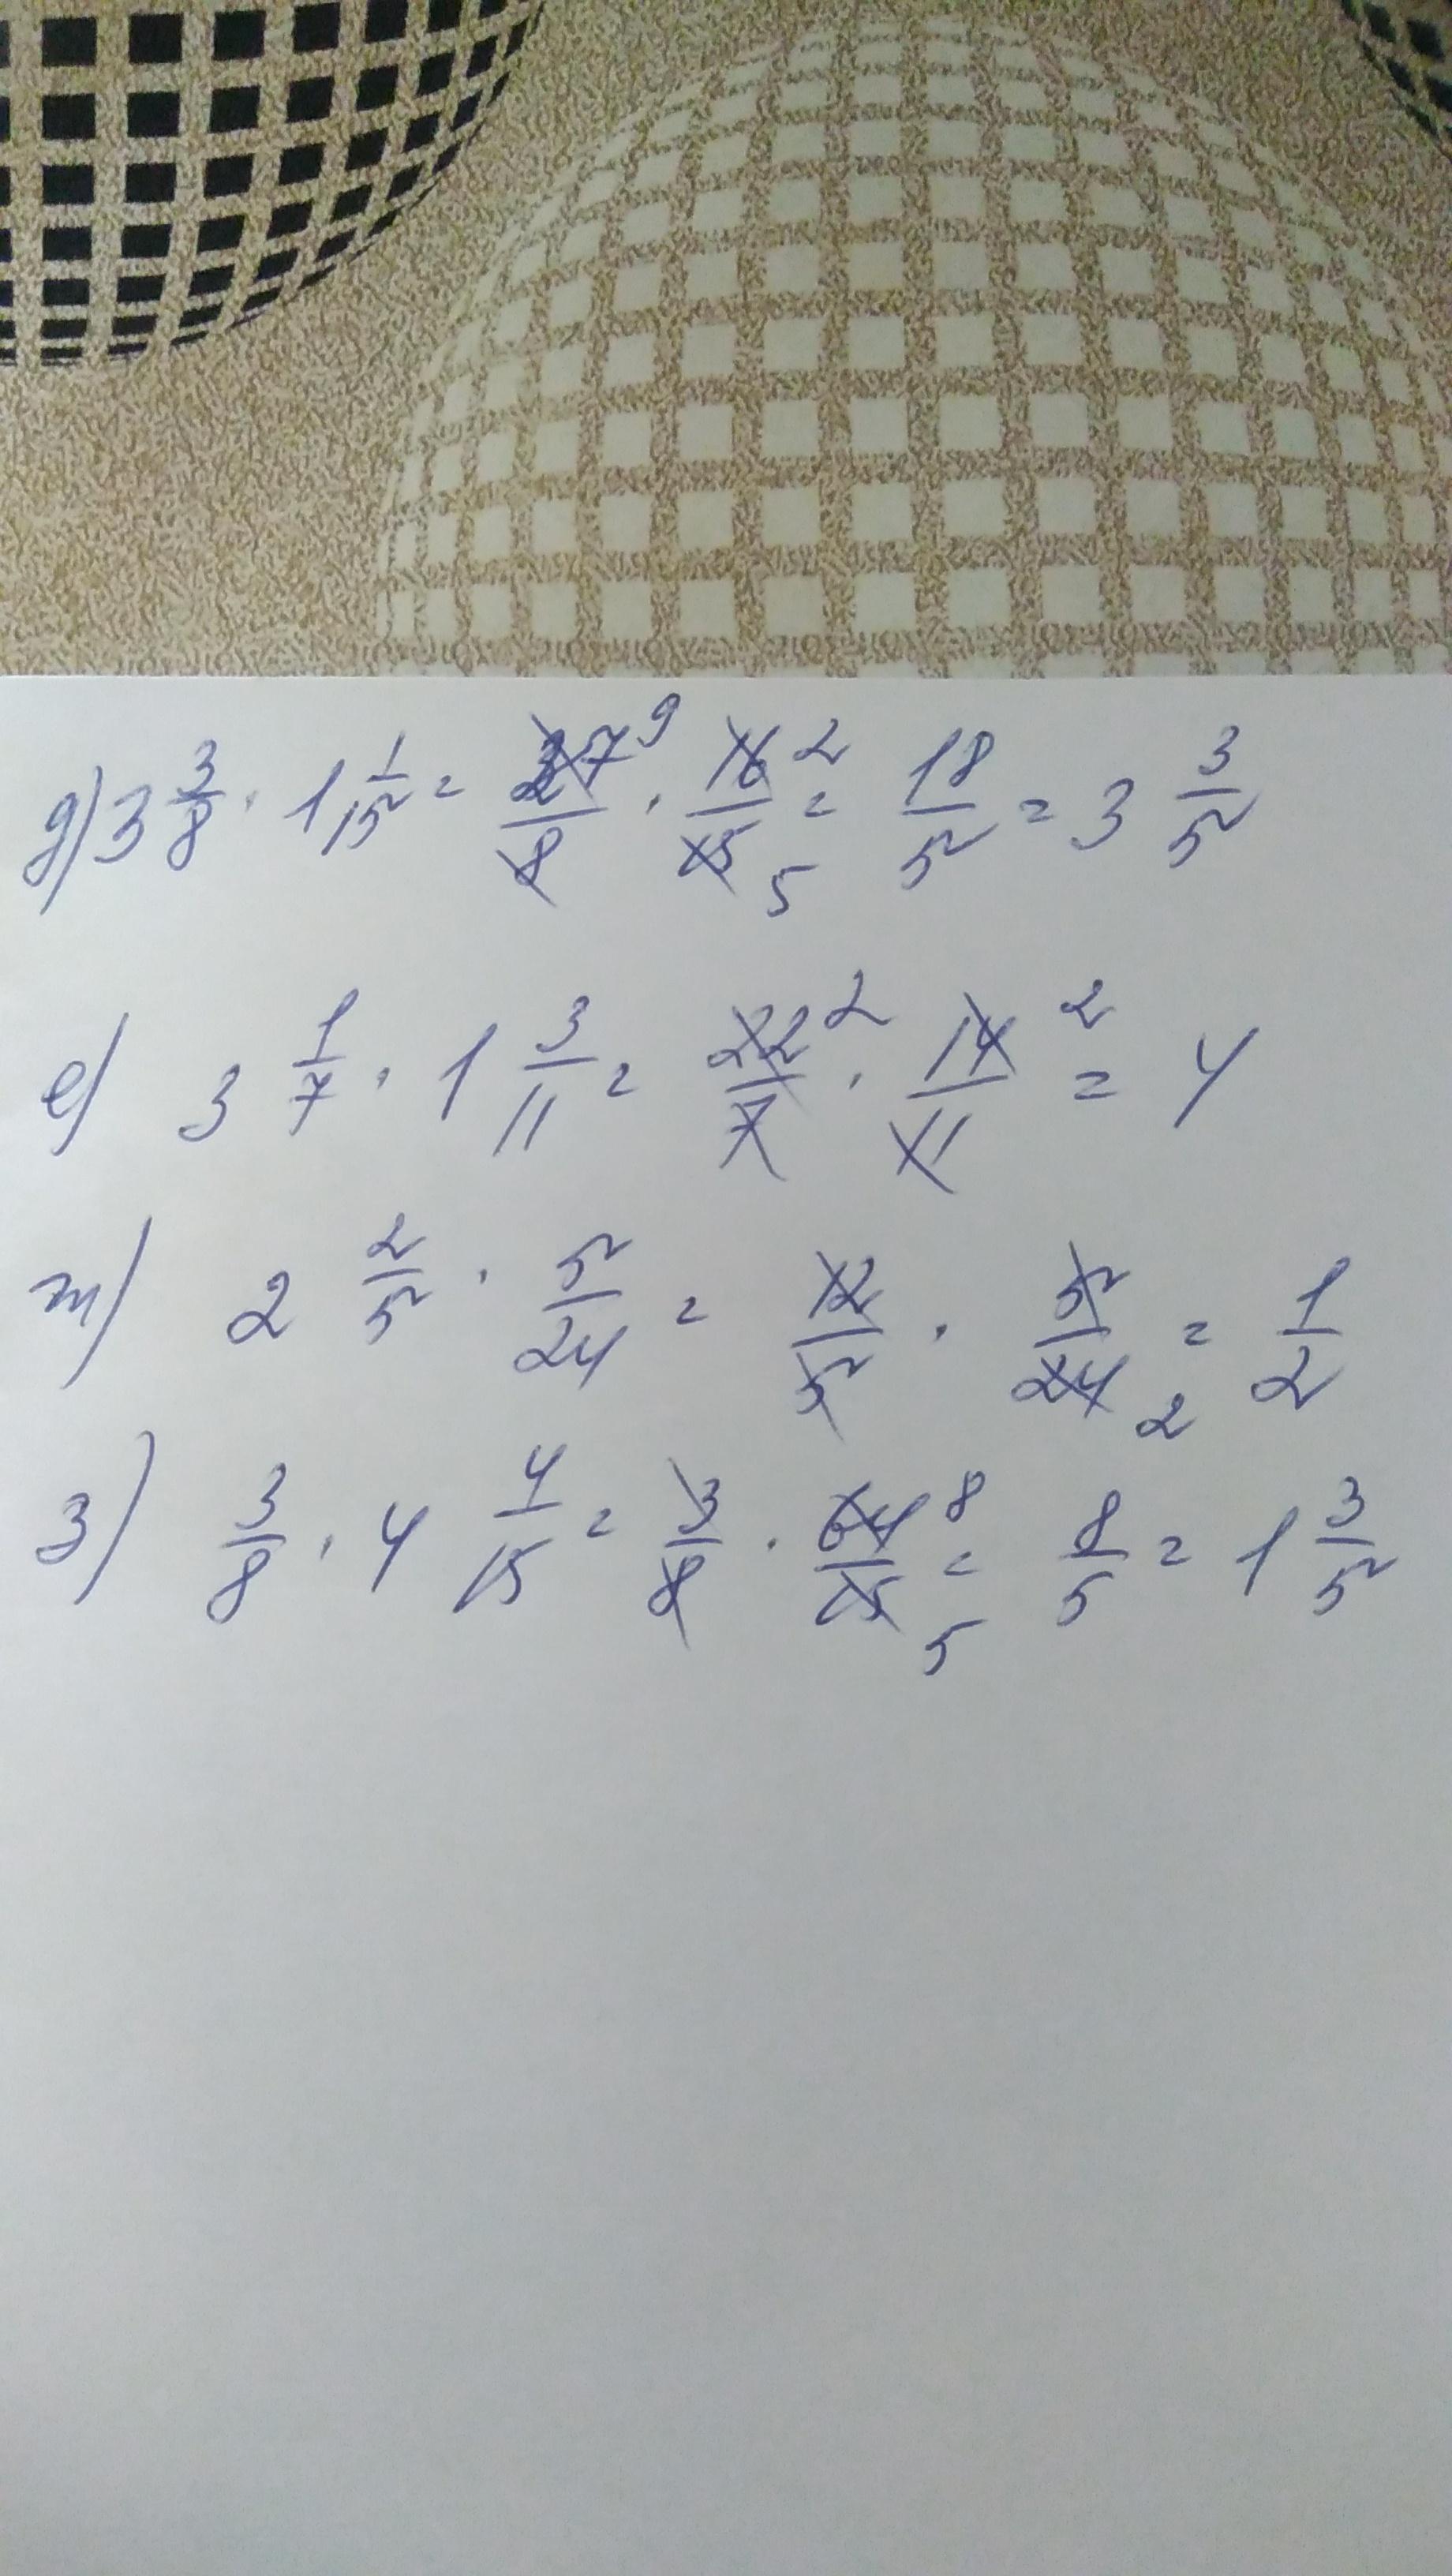 д) 3 3/8 · 1 1/15 = 27/8 9 · 16/15 2/5 = 18/5 = 3 3/5
е) 3 1/7 · 1 3/11 = 22/7 2 · 14/11 2 = 4
ж) 2 2/5 · 5/24 = 12/5 · 5/24 2 = 1/2
з) 3/8 · 4 4/15 = 3/8 · 64/15 8/5 = 8/5 = 1 3/5